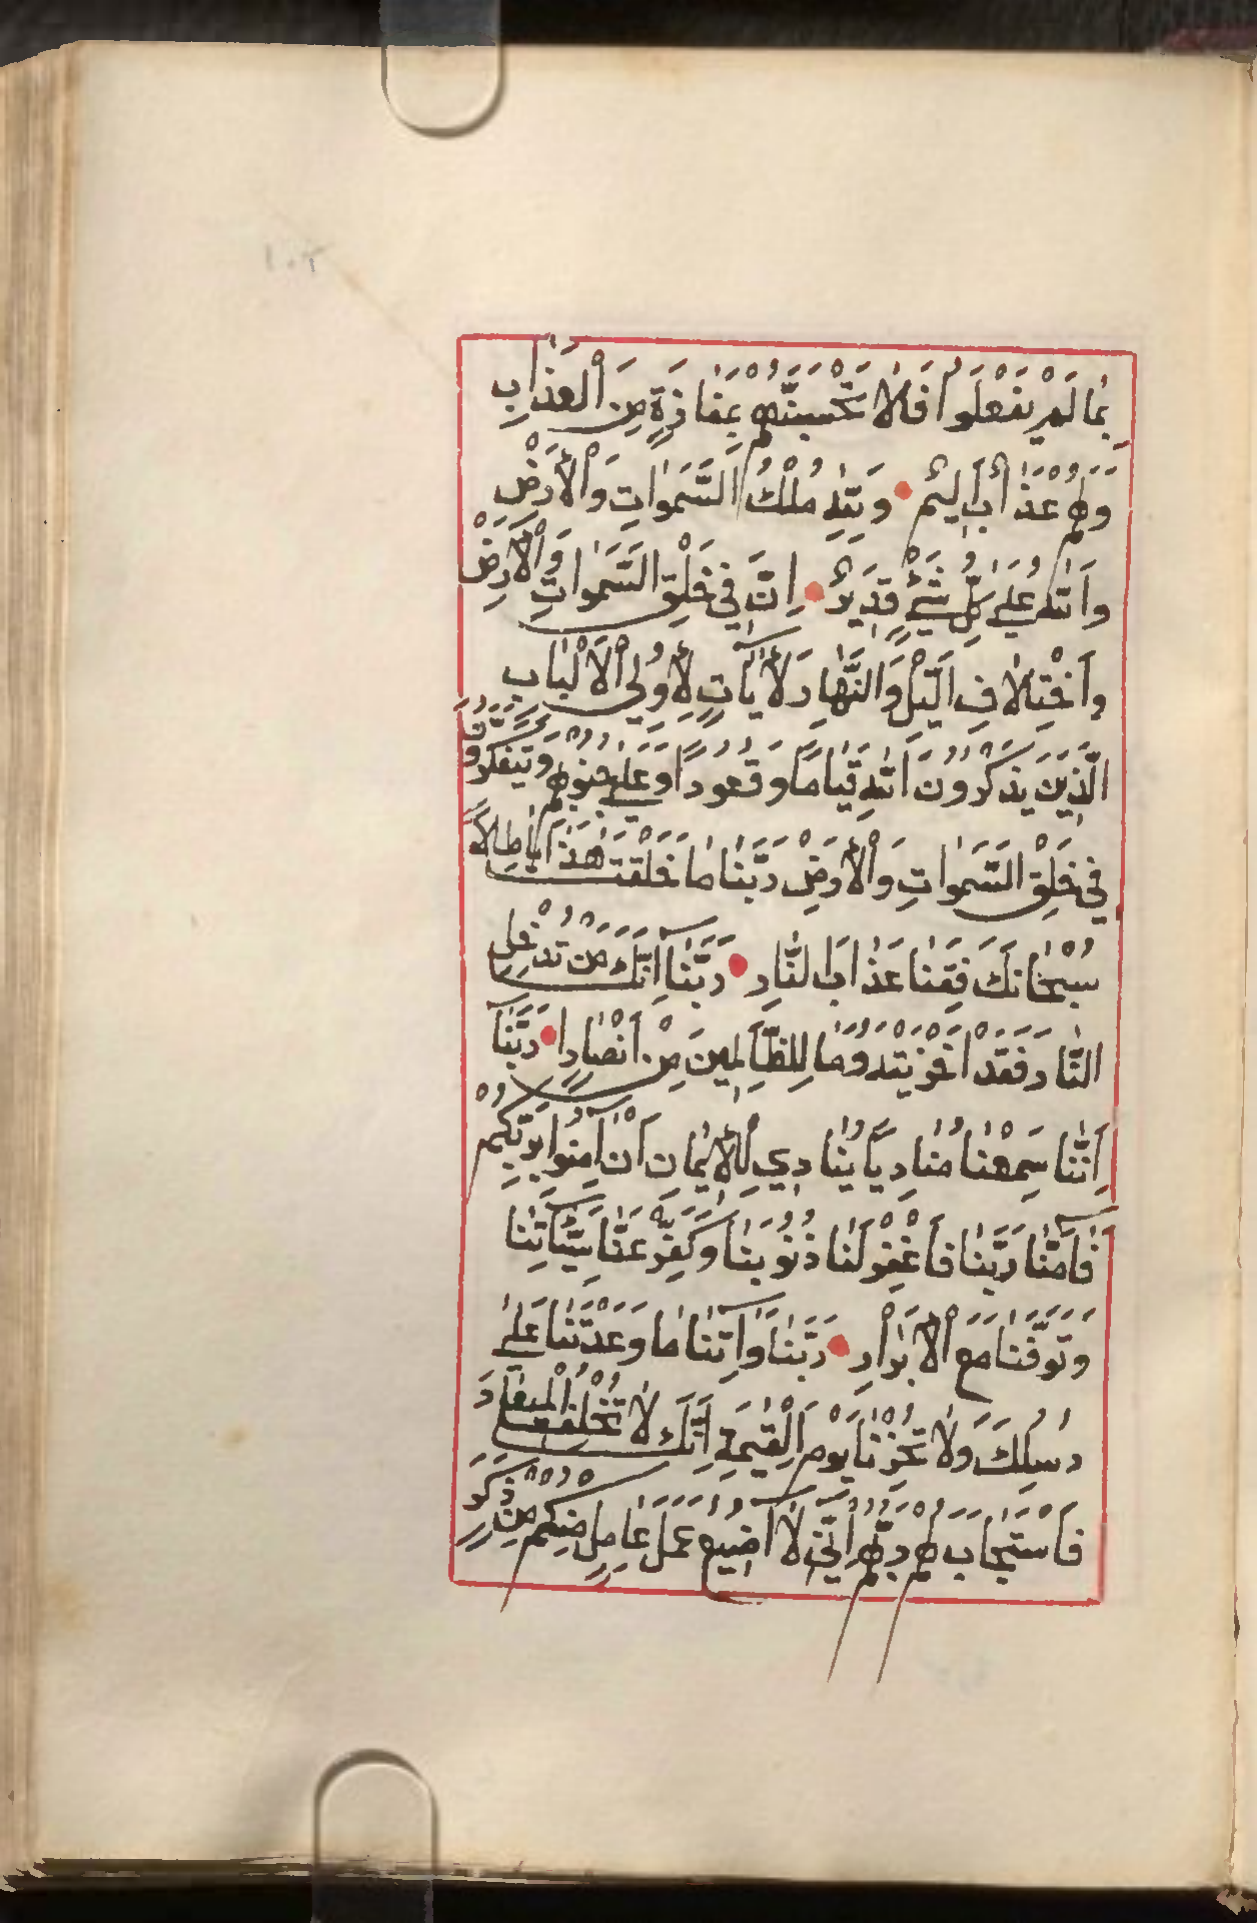 ١٠٢
بِمَا لَمْ يَفْعَلُوا فَلَا تَحْسَبَنَّهُمْ بِمَفَازَةٍ مِنَ الْعَذَابِ
وَلَهُمْ عَذَابٌ أَلِيمٌ وَلِلّٰهِ مُلْكُ السَّمٰوَاتِ وَالْأَرْضِ
وَاللّٰهُ عَلٰى كُلِّ شَيْءٍ قَدِيرٌ إِنَّ فِي خَلْقِ السَّمٰوَاتِ وَالْأَرْضِ
وَاخْتِلَافِ الَّيْلِ وَالنَّهَارِ لَآيَاتٍ لِأُولِي الْأَلْبَابِ
الَّذِينَ يَذْكُرُونَ اللّٰهَ قِيَامًا وَقُعُودًا وَعَلٰى جُنُوبِهِمْ وَيَتَفَكَّرُونَ
فِي خَلْقِ السَّمٰوَاتِ وَالْأَرْضِ رَبَّنَا مَا خَلَقْتَ هٰذَا بَاطِلًا
سُبْحَانَكَ فَقِنَا عَذَابَ النَّارِ رَبَّنَا إِنَّكَ مَنْ تُدْخِلِ
النَّارَ فَقَدْ أَخْزَيْتَهُ وَمَا لِلظَّالِمِينَ مِنْ أَنْصَارٍ رَبَّنَا
إِنَّنَا سَمِعْنَا مُنَادِيًا يُنَادِي لِلْإِيمَانِ أَنْ آمِنُوا بِرَبِّكُمْ
فَآمَنَّا رَبَّنَا فَاغْفِرْ لَنَا ذُنُوبَنَا وَكَفِّرْ عَنَّا سَيِّئَاتِنَا
وَتَوَفَّنَا مَعَ الْأَبْرَارِ رَبَّنَا وَآتِنَا مَا وَعَدْتَنَا عَلٰى
رُسُلِكَ وَلَا تُخْزِنَا يَوْمَ الْقِيٰمَةِ إِنَّكَ لَا تُخْلِفُ الْمِيعَادَ
فَاسْتَجَابَ لَهُمْ رَبُّهُمْ أَنِّي لَا أُضِيعُ عَمَلَ عَامِلٍ مِنْكُمْ مِنْ ذَكَرٍ